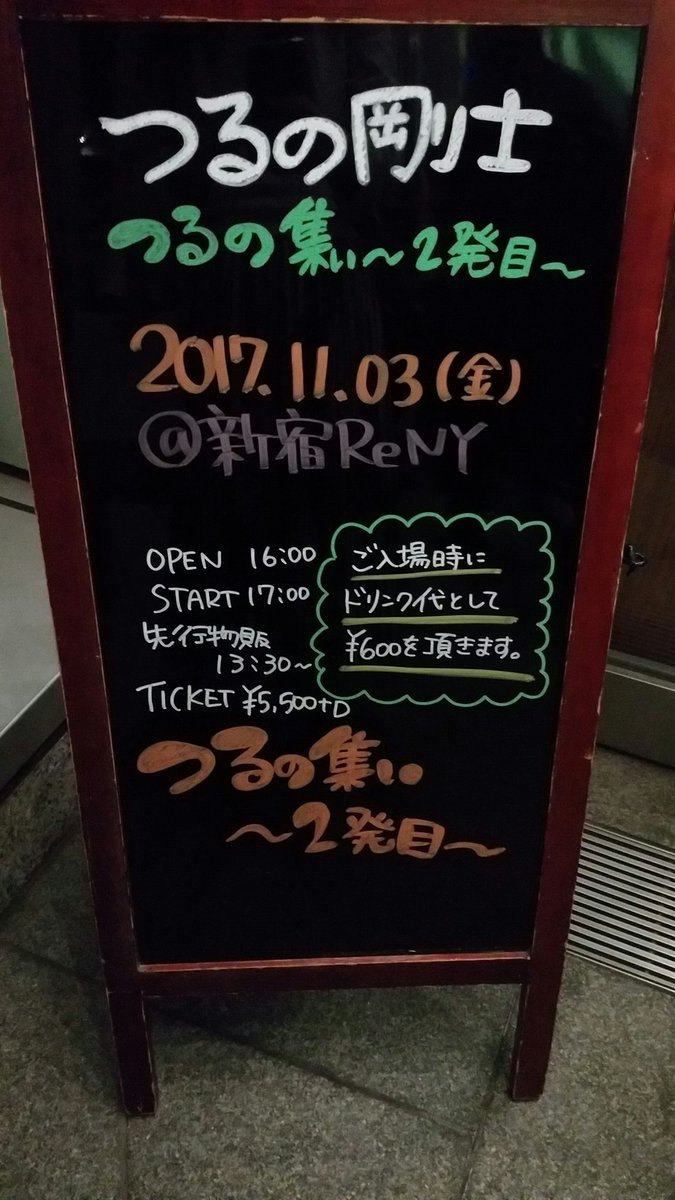 つるの剛士
つるの集い〜2発目〜
2017.11.03(金)
@新宿ReNY
OPEN 16:00
START 17:00
先行物販
13:30〜
TICKET ¥5,500+D
ご入場時に
ドリンク代として
¥600を頂きます。
つるの集い
〜2発目〜